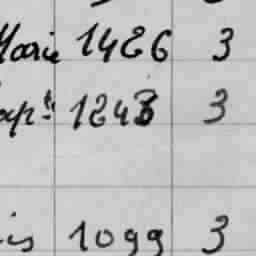 Marie 1426 3
1243 3
is 1099 3